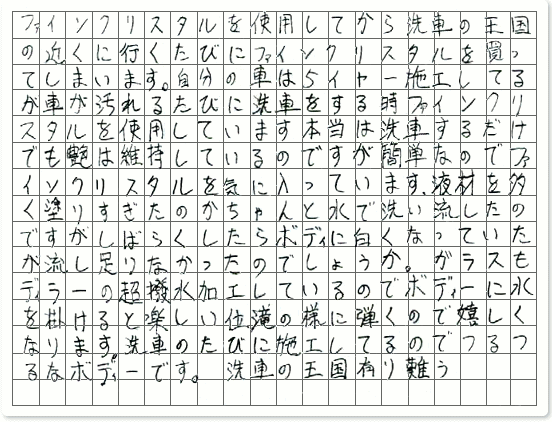 ファインクリスタルを使用してから洗車の王国
の近くに行くたびにファインクリスタルを買っ
てしまいます。自分の車は5イヤー施工してる
が車が汚れるたびに洗車をする時ファインクリ
スタルを使用しています本当は洗車するだけ
でも艶は維持しているのですが簡単なのでファ
インクリスタルを気に入っています。液材を多
く塗りすぎたのかちゃんと水で洗い流したの
ですがしばらくしたらボディに白くなっていた
が流し足りなかったのでしょうか。ガラスも
ディラーの超撥水加工しているのでボディーに水
を掛けると楽しい位滝の様に弾くので嬉しく
なります。洗車のたびに施工してるのでつるつ
るなボディーです。 洗車の王国有り難う